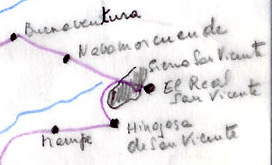 Buenaventura
Navamorcuende
Sierra San Vicente
El Real
San Vicente
Hinojosa
de San Vicente